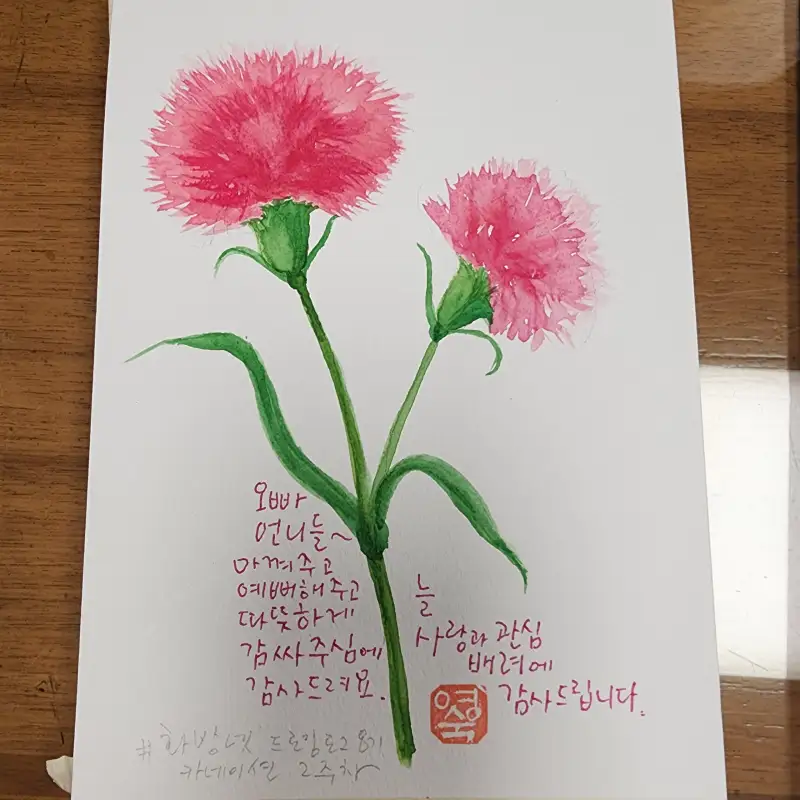 오빠
언니들~
아껴주고
예뻐해주고
따뜻하게
감싸주심에
감사드려요.
늘
사랑과 관심
배려에
감사드립니다.
영숙
카네이션 2주차